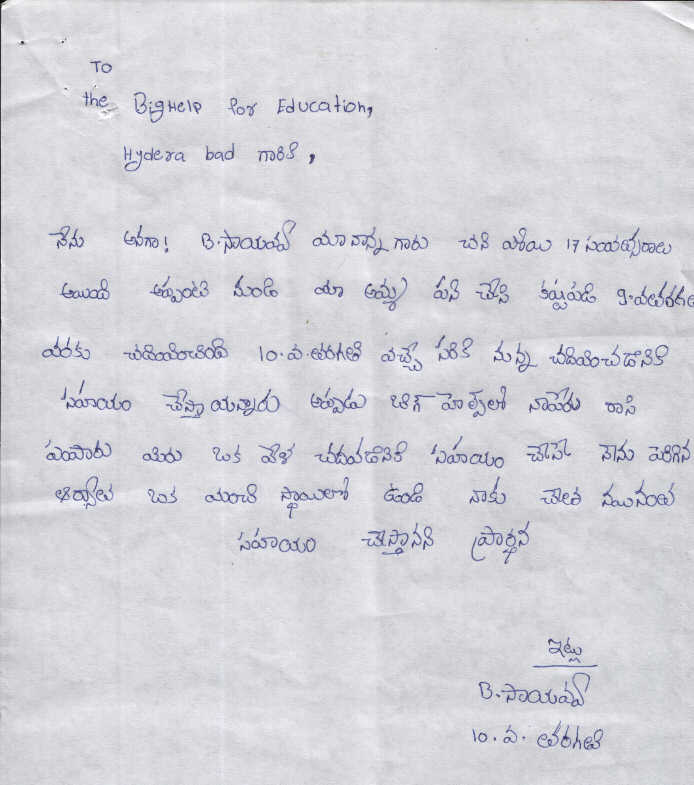 To
the BigHelp for Education,
Hydera bad గారికి,
నేను అనగా! B.సాయమ్మ మా నాన్న గారు చని పోయి 17 సంవత్సరాలు
అయింది అప్పంటి నుండి మా అమ్మ పని చేసి కష్టపడి 9.వతరగతి
వరకు చదివించింది 10.వ.తరగతి వచ్చే సరికి నున్న చదివించడానికి
సహాయం చేస్తా యన్నారు అప్పుడు బిగ్ హెల్ప్‌లో నాపేరు రాసి
పంపారు మిరు ఒక వేళ చదవడానికి సహాయం చేసే నేను పెరిగిన
ఒక మంచి స్థాయిలో ఉండి నాకు చేత నయినంత
సహాయం చేస్తానని ప్రార్థన
ఇట్లు
B.సాయమ్మ
10.వ.తరగతి